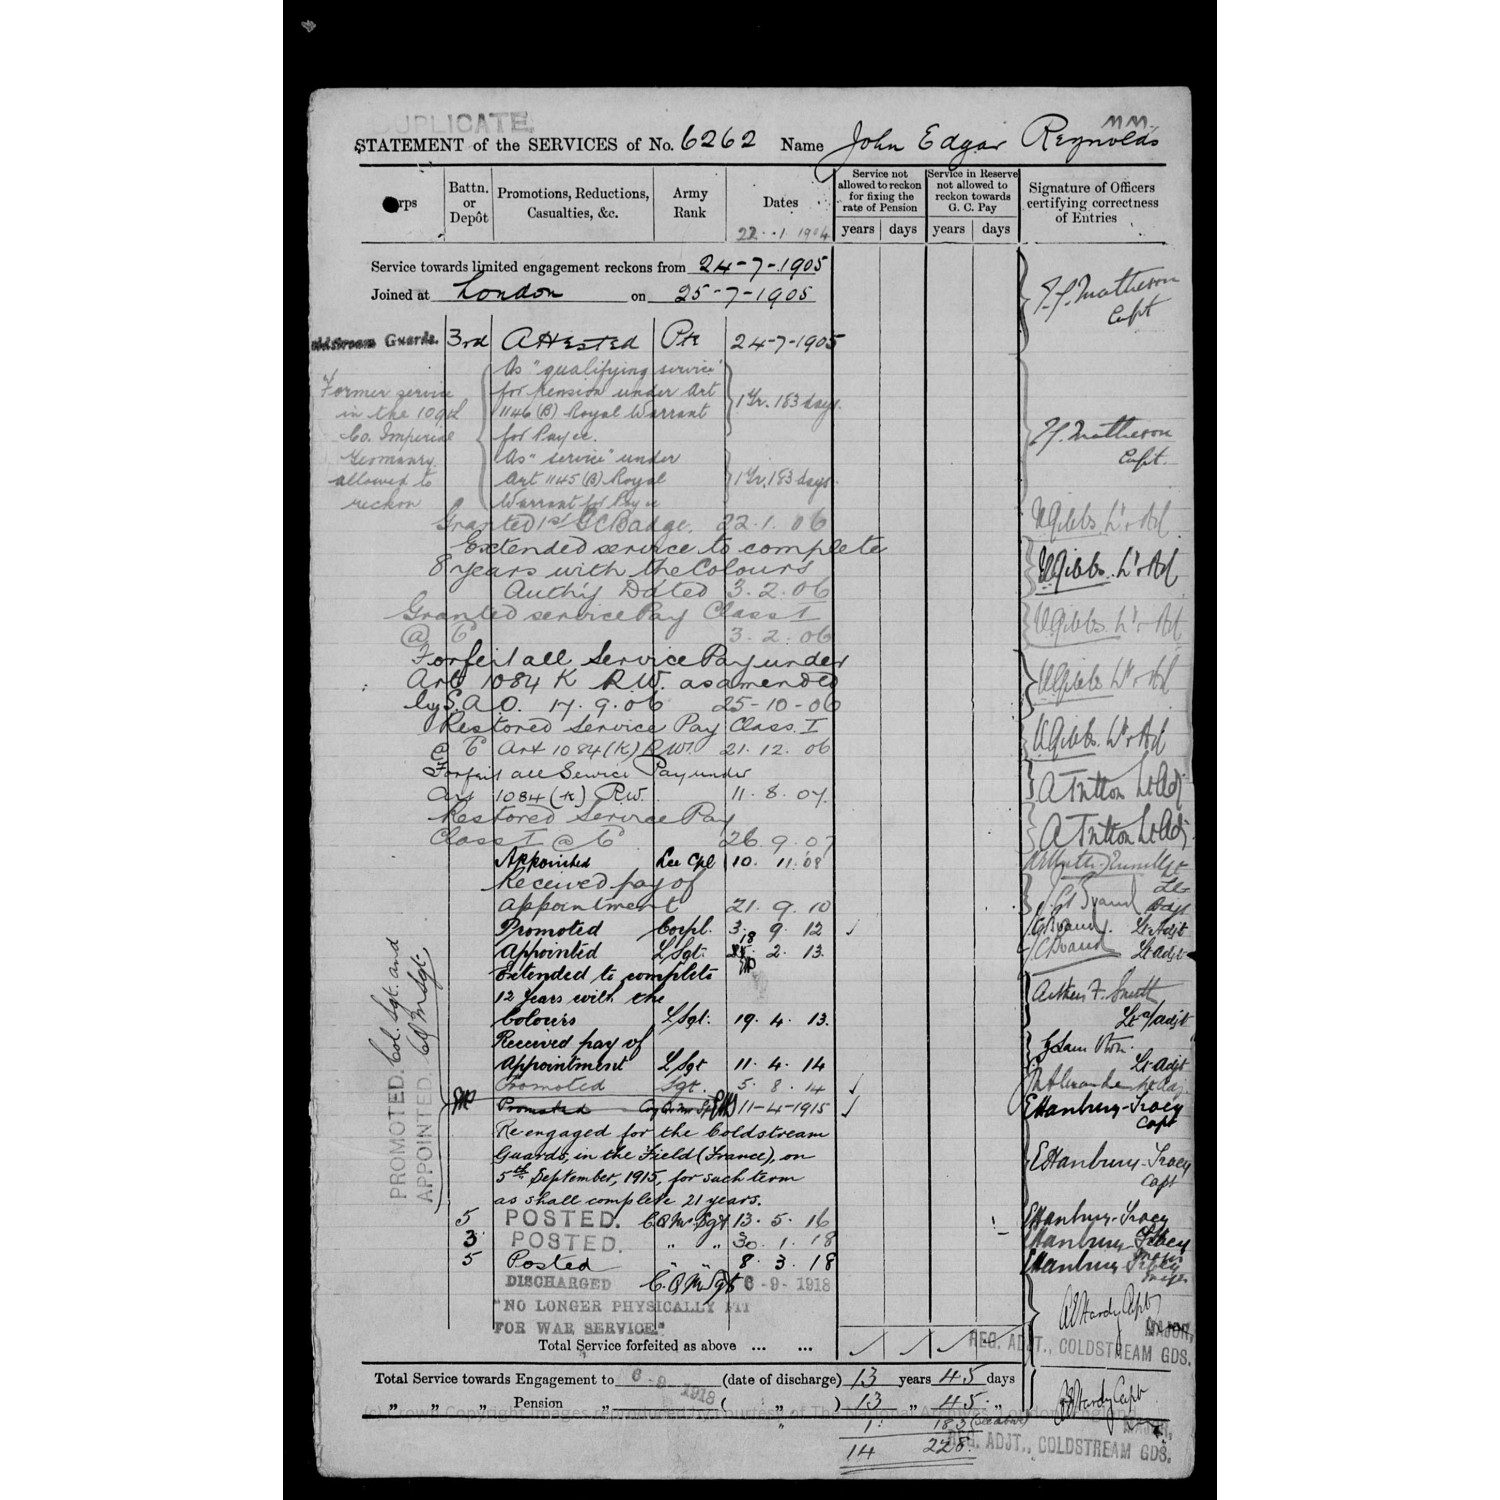 DUPLICATE.
MM.
STATEMENT of the SERVICES of No. 6262 Name John Edgar Reynolds
Corps
Battn. or Depôt
Promotions, Reductions, Casualties, &c.
Army Rank
Dates
Service not allowed to reckon for fixing the rate of Pension
Service in Reserve not allowed to reckon towards G. C. Pay
Signature of Officers certifying correctness of Entries
years days years days
22 . 1 1904
Service towards limited engagement reckons from 24-7-1905
Joined at London on 25-7-1905
Matheson Capt
Coldstream Guards. 3rd Attested Pte 24-7-1905
Former service in the 109th Co. Imperial Yeomanry allowed to reckon
As "qualifying service" for pension under Art 1146 (B) Royal Warrant for Pay &c. 1 Yr. 183 days.
Matheson Capt.
As "service" under Art 1145 (B) Royal Warrant for Pay &c 1 Yr. 183 days.
Granted 1st GC Badge. 22.1.06 Gibbs. Lt & Adj
Extended service to complete
8 years with the Colours
Auth'y Dated 3.2.06 Gibbs. Lt & Adj
Granted service Pay Class I
@ 3.2.06 Gibbs. Lt & Adj
Forfeit all Service Pay under
Art 1084 K R.W. as amended
by S.A.O. 17.9.06 25-10-06 Gibbs Lt & Adj
Restored Service Pay Class I
@ Art 1084 (K) R.W. 21.12.06 Gibbs. Lt & Adj
Forfeit all Service Pay under
Art 1084 (K) R.W. 11.8.07 A Tritton Lt & Adj
Restored Service Pay
Class I @ 26.9.07 A Tritton Lt & Adj
Appointed Lce Cpl 10. 11. 08
Received pay of
appointment 21. 9. 10 Brand Lt Adjt
Promoted Corpl. 3. 9. 12 Brand. Lt Adjt
Appointed L Sgt. 18 2. 13. Brand Lt Adjt
Extended to complete
12 years with the
Colours L Sgt. 19. 4. 13. Smith Lt a/Adjt
Received pay of
Appointment L Sgt 11. 4. 14 Lt Adjt
Promoted Sgt. 5. 8. 14
Promoted 11-4-1915 E Hanbury-Tracy Capt
PROMOTED. Col. Sgt. and
APPOINTED. CQMSgt.
Re-engaged for the Coldstream
Guards, in the Field (France), on
5th September, 1915, for such term
as shall complete 21 years.
E Hanbury-Tracy Capt
5 POSTED. CQMSgt 13. 5. 16 E Hanbury-Tracy
3 POSTED. " " 30. 1. 18 E Hanbury-Tracy
5 Posted " " 8. 3. 18 E Hanbury-Tracy
DISCHARGED C.Q.M.Sgt 6-9-1918
"NO LONGER PHYSICALLY FIT
FOR WAR SERVICE."
Hardy Capt
MAJOR,
REG. ADJT., COLDSTREAM GDS.
Total Service forfeited as above ... ...
Total Service towards Engagement to 6-9-1918 (date of discharge) 13 years 45 days
" " " Pension " ( " ) 13 " 45 "
Hardy Capt
(c) Crown Copyright Images reproduced by courtesy of The National Archives, London, England
1 183 (see above)
14 228.
MAJOR,
REG. ADJT., COLDSTREAM GDS.